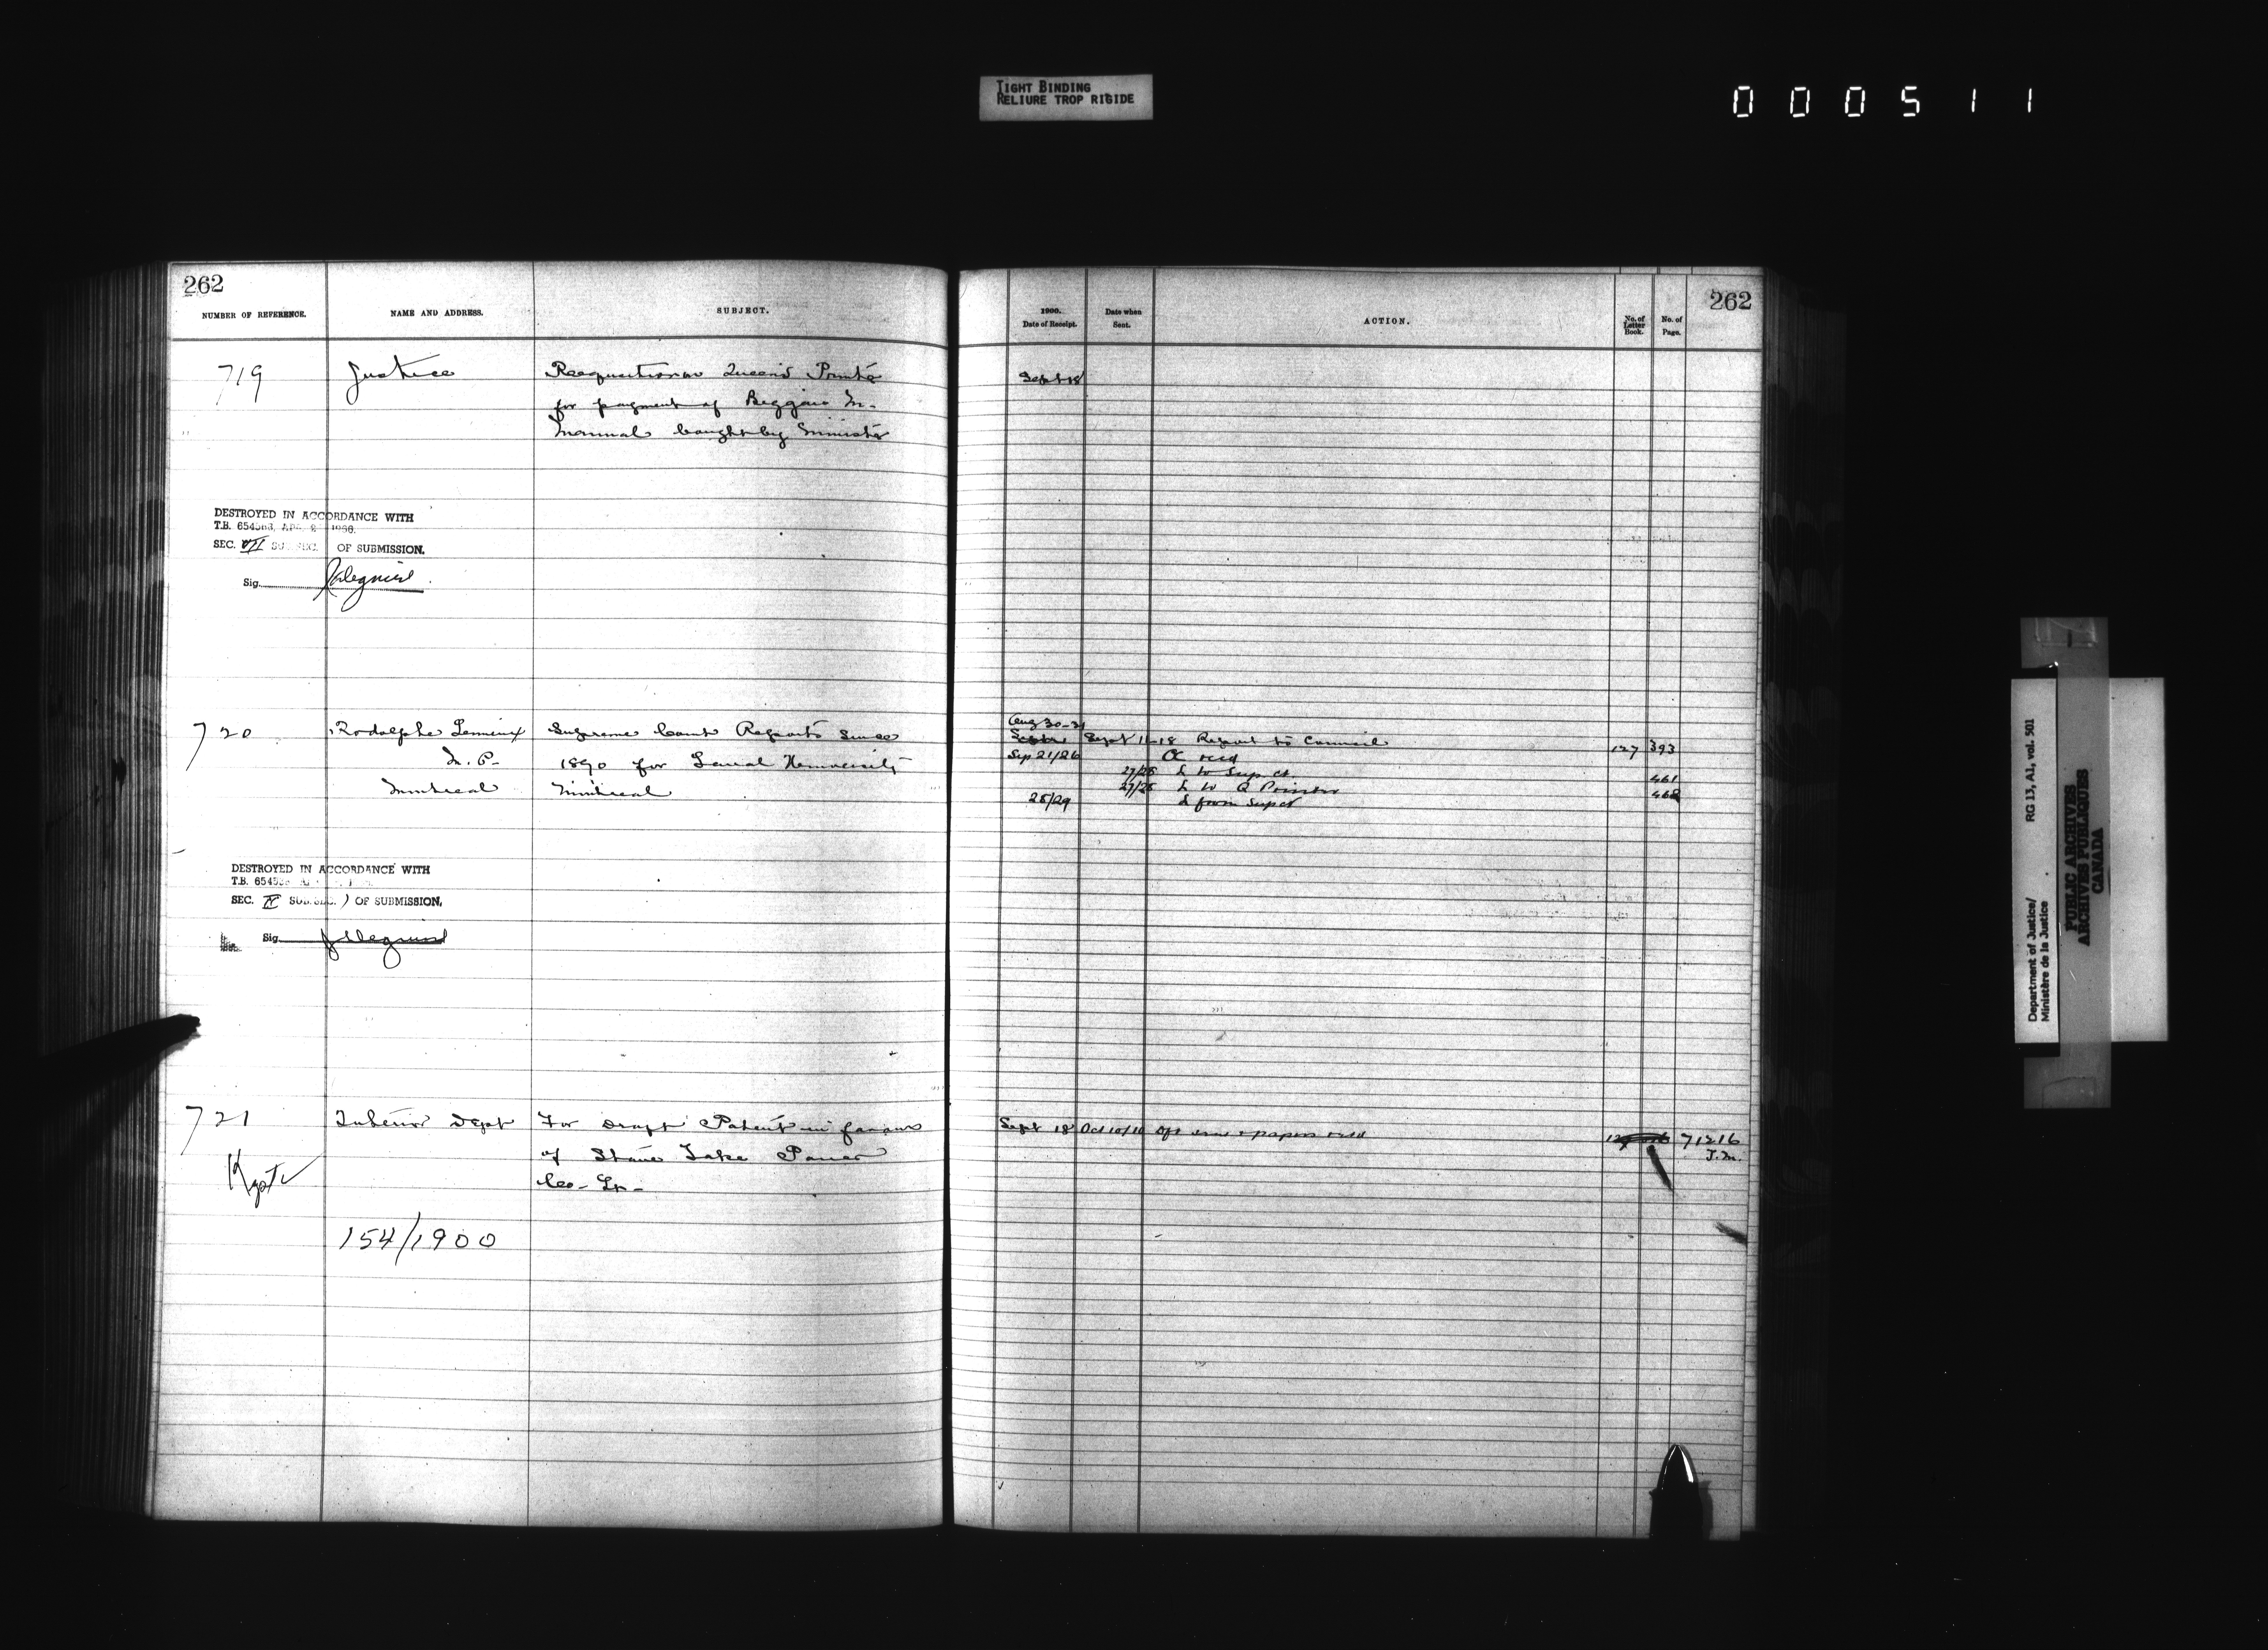 TIGHT BINDING
RELIURE TROP RIGIDE
000511
262
NUMBER OF REFERENCE.
NAME AND ADDRESS.
SUBJECT.
719
Justice
Requisition on Queen's Printer
for payment of
Manual bought by Minister
DESTROYED IN ACCORDANCE WITH
T.B. 654563, APR. 2 1966.
SEC. VII SUB. SEC. OF SUBMISSION.
Sig.
720
Rodolphe Lemieux
M.P.
Montreal
Supreme Court Reports since
1890 for Laval University
Montreal
DESTROYED IN ACCORDANCE WITH
T.B.
SEC. IV SUB. SEC. ) OF SUBMISSION.
Sig.
721
Interior Dept
For Draft Patent in favour
of Lake Power
Co. Ld.
Kept
154/1900
262
1900.
Date of Receipt.
Date when
Sent.
ACTION.
No. of
Letter
Book.
No. of
Page.
Sept 18
Aug 30-31
Sept 11-18 Report to Council 127 393
Sep 21/26 OC recd
27/28 L to Sup Ct. 461
27/28 L to Q Printer 462
28/29 L from Sup Ct
Sept 18 Oct 10/10 & papers retd 71216
J.M.
Department of Justice/
Ministère de la Justice
RG 13, A1, vol. 501
PUBLIC ARCHIVES
ARCHIVES PUBLIQUES
CANADA